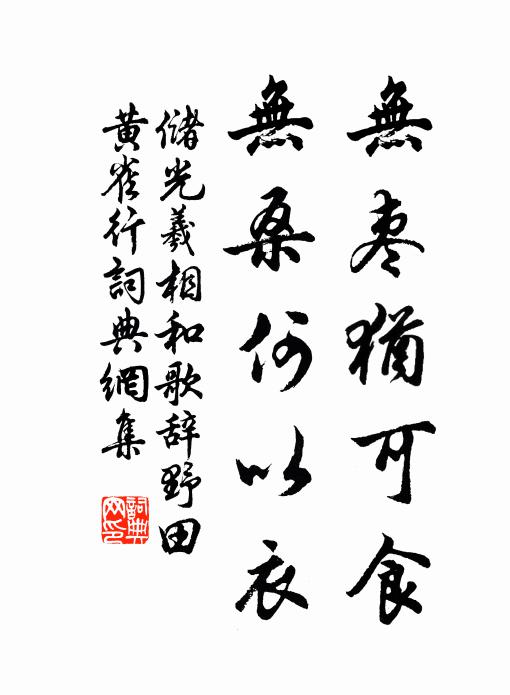 無棗猶可食
無桑何以衣
儲光羲相和歌辞野田
黄雀行詞典網集
詞典
网印